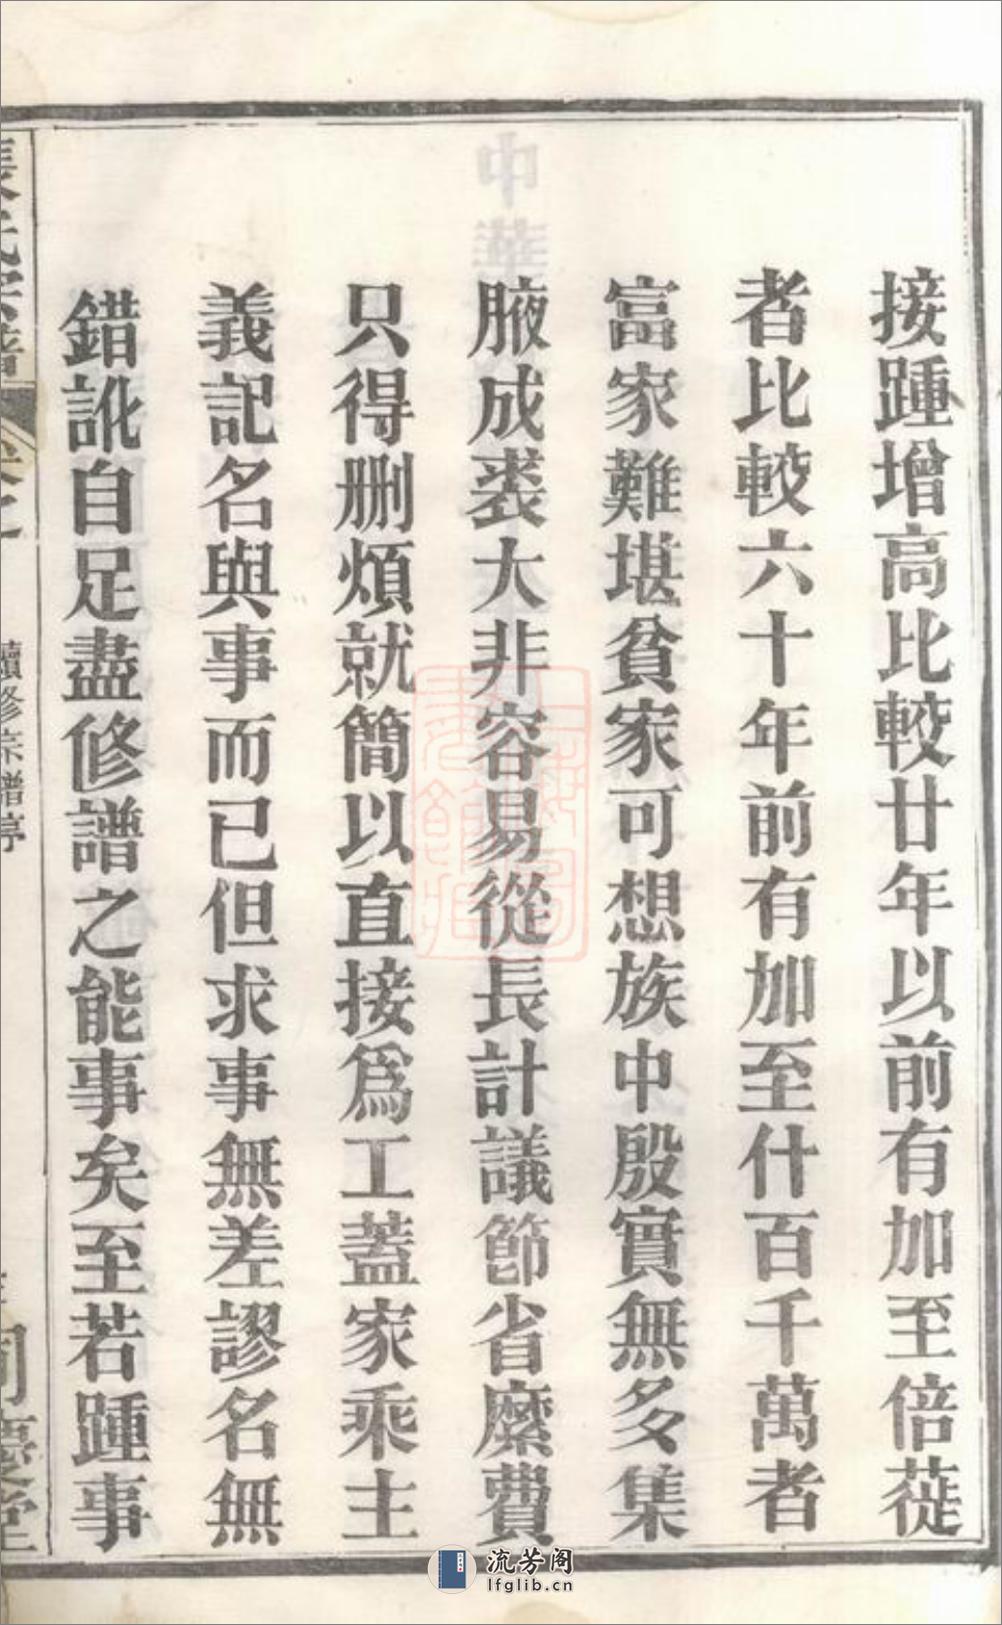 接踵增高比較廿年以前有加至倍蓰
者比較六十年前有加至什百千萬者
富家難堪貧家可想族中殷實無多集
腋成裘大非容易從長計議節省縻費
只得删煩就簡以直接爲工蓋家乘主
義記名與事而已但求事無差謬名無
錯訛自足盡修譜之能事矣至若踵事
中華
氏宗譜
卷之
續修宗譜序
同慶堂
流芳阁
lfglib.cn